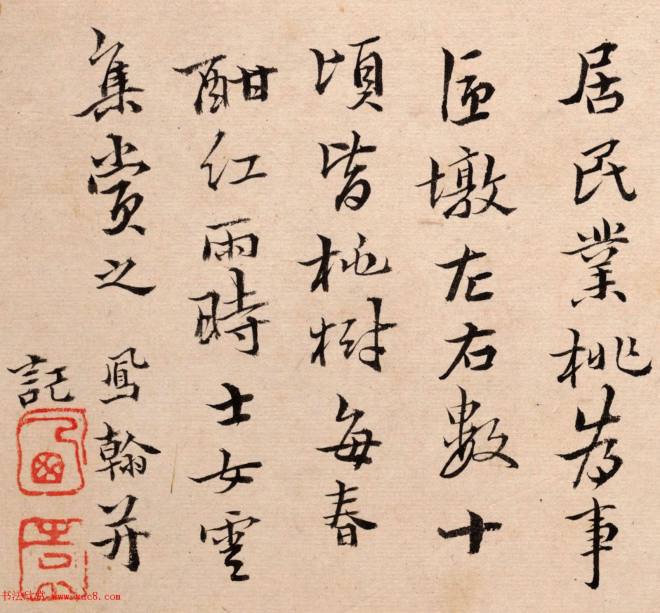 居民業桃為事
匝墩左右數十
頃皆桃樹每春
酣紅雨時士女雲
集賞之 鳳翰并
記
书法欣赏 www.yac8.com